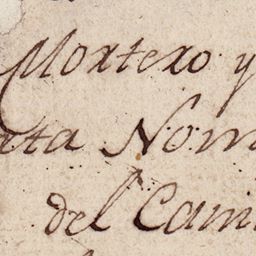 Mortero y
ata Nom
del Cami